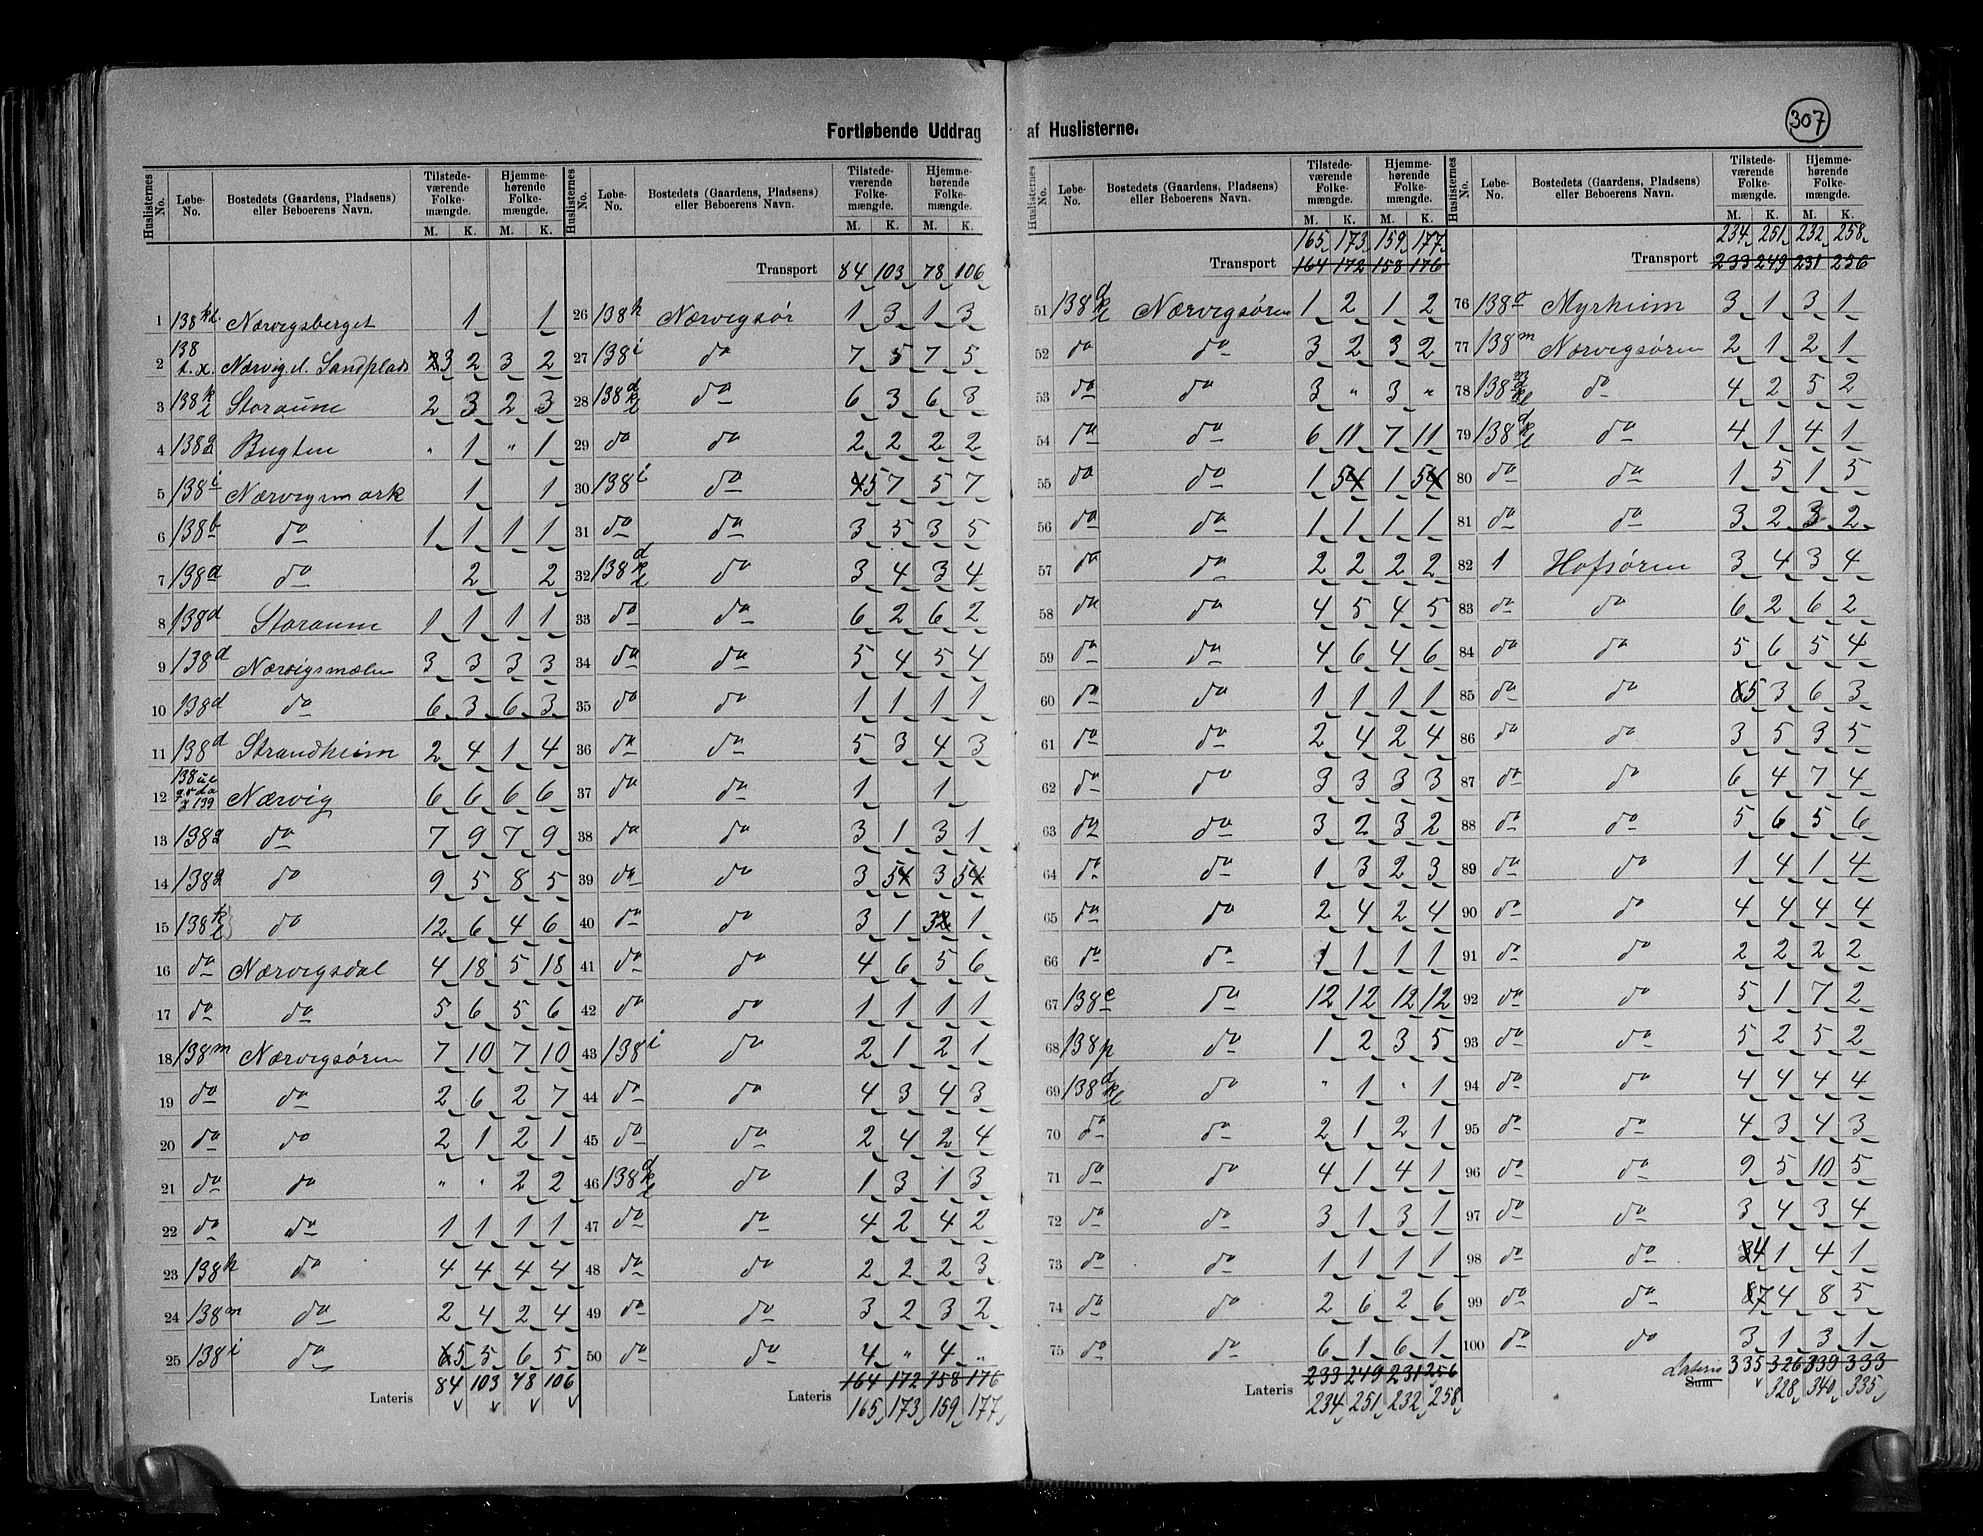 307
Fortløbende Uddrag af Huslisterne.
Huslisternes No. | Løbe-No. | Bostedets (Gaardens, Pladsens) eller Beboerens Navn. | Tilstede-værende Folke-mængde. M. K. | Hjemme-hørende Folke-mængde. M. K.
1 138 Nærvigsberget 1 1
2 138 t.x. Nærvig d. Sandplads 3 2 3 2
3 138 k l Storaune 2 3 2 3
4 138 g Bugten " 1 " 1
5 138 i Nærvigsmark 1 1
6 138 b do 1 1 1 1
7 138 a do 2 2
8 138 d Storaune 1 1 1 1
9 138 d Nærvigsmælen 3 3 3 3
10 138 d do 6 3 6 3
11 138 d Strandheim 2 4 1 4
12 Nærvig 6 6 6 6
13 138 g do 7 9 7 9
14 138 g do 9 5 8 5
15 138 k l do 12 6 4 6
16 do Nærvigsdal 4 18 5 18
17 do do 5 6 5 6
18 138 m Nærvigsøren 7 10 7 10
19 do do 2 6 2 7
20 do do 2 1 2 1
21 do do " " 2 2
22 do do 1 1 1 1
23 138 k do 4 4 4 4
24 138 m do 2 4 2 4
25 138 i do 5 5 6 5
Lateris 84 103 78 106
Huslisternes No. | Løbe-No. | Bostedets (Gaardens, Pladsens) eller Beboerens Navn. | Tilstede-værende Folke-mængde. M. K. | Hjemme-hørende Folke-mængde. M. K.
Transport 84 103 78 106
26 138 k Nærvigsør 1 3 1 3
27 138 i do 7 5 7 5
28 138 d k l do 6 3 6 3
29 do do 2 2 2 2
30 138 i do 5 7 5 7
31 do do 3 5 3 5
32 138 d k l do 3 4 3 4
33 do do 6 2 6 2
34 do do 5 4 5 4
35 do do 1 1 1 1
36 do do 5 3 4 3
37 do do 1 1
38 do do 3 1 3 1
39 do do 3 5 3 5
40 do do 3 1 3 1
41 do do 4 6 5 6
42 do do 1 1 1 1
43 138 i do 2 1 2 1
44 do do 4 3 4 3
45 do do 2 4 2 4
46 138 d k l do 1 3 1 3
47 do do 4 2 4 2
48 do do 2 2 2 3
49 do do 3 2 3 2
50 do do 4 " 4 "
Lateris 164 172 158 176
165 173 159 177
Huslisternes No. | Løbe-No. | Bostedets (Gaardens, Pladsens) eller Beboerens Navn. | Tilstede-værende Folke-mængde. M. K. | Hjemme-hørende Folke-mængde. M. K.
165 173 159 177
Transport 164 172 158 176
51 138 d k l Nærvigsøren 1 2 1 2
52 do do 3 2 3 2
53 do do 3 " 3 "
54 do do 6 11 7 11
55 do do 1 5 1 5
56 do do 1 1 1 1
57 do do 2 2 2 2
58 do do 4 5 4 5
59 do do 4 6 4 6
60 do do 1 1 1 1
61 do do 2 4 2 4
62 do do 3 3 3 3
63 do do 3 2 3 2
64 do do 1 3 2 3
65 do do 2 4 2 4
66 do do 1 1 1 1
67 138 e do 12 12 12 12
68 138 p do 1 2 3 5
69 138 d k l do " 1 " 1
70 do do 2 1 2 1
71 do do 4 1 4 1
72 do do 3 1 3 1
73 do do 1 1 1 1
74 do do 2 6 2 6
75 do do 6 1 6 1
233 249 231 256
Lateris 234 251 232 258
Huslisternes No. | Løbe-No. | Bostedets (Gaardens, Pladsens) eller Beboerens Navn. | Tilstede-værende Folke-mængde. M. K. | Hjemme-hørende Folke-mængde. M. K.
234 251 232 258
Transport 233 249 231 256
76 138 o Myrheim 3 1 3 1
77 138 m Nærvigsøren 2 1 2 1
78 138 do 4 2 5 2
79 138 d k l do 4 1 4 1
80 do do 1 5 1 5
81 do do 3 2 3 2
82 1 Hofsøren 3 4 3 4
83 do do 6 2 6 2
84 do do 5 6 5 4
85 do do 5 3 6 3
86 do do 3 5 3 5
87 do do 6 4 7 4
88 do do 5 6 5 6
89 do do 1 4 1 4
90 do do 4 4 4 4
91 do do 2 2 2 2
92 do do 5 1 7 2
93 do do 5 2 5 2
94 do do 4 4 4 4
95 do do 4 3 4 3
96 do do 9 5 10 5
97 do do 3 4 3 4
98 do do 4 1 4 1
99 do do 7 4 8 5
100 do do 3 1 3 1
Lateris Sum 335 326 339 333
328 340 335